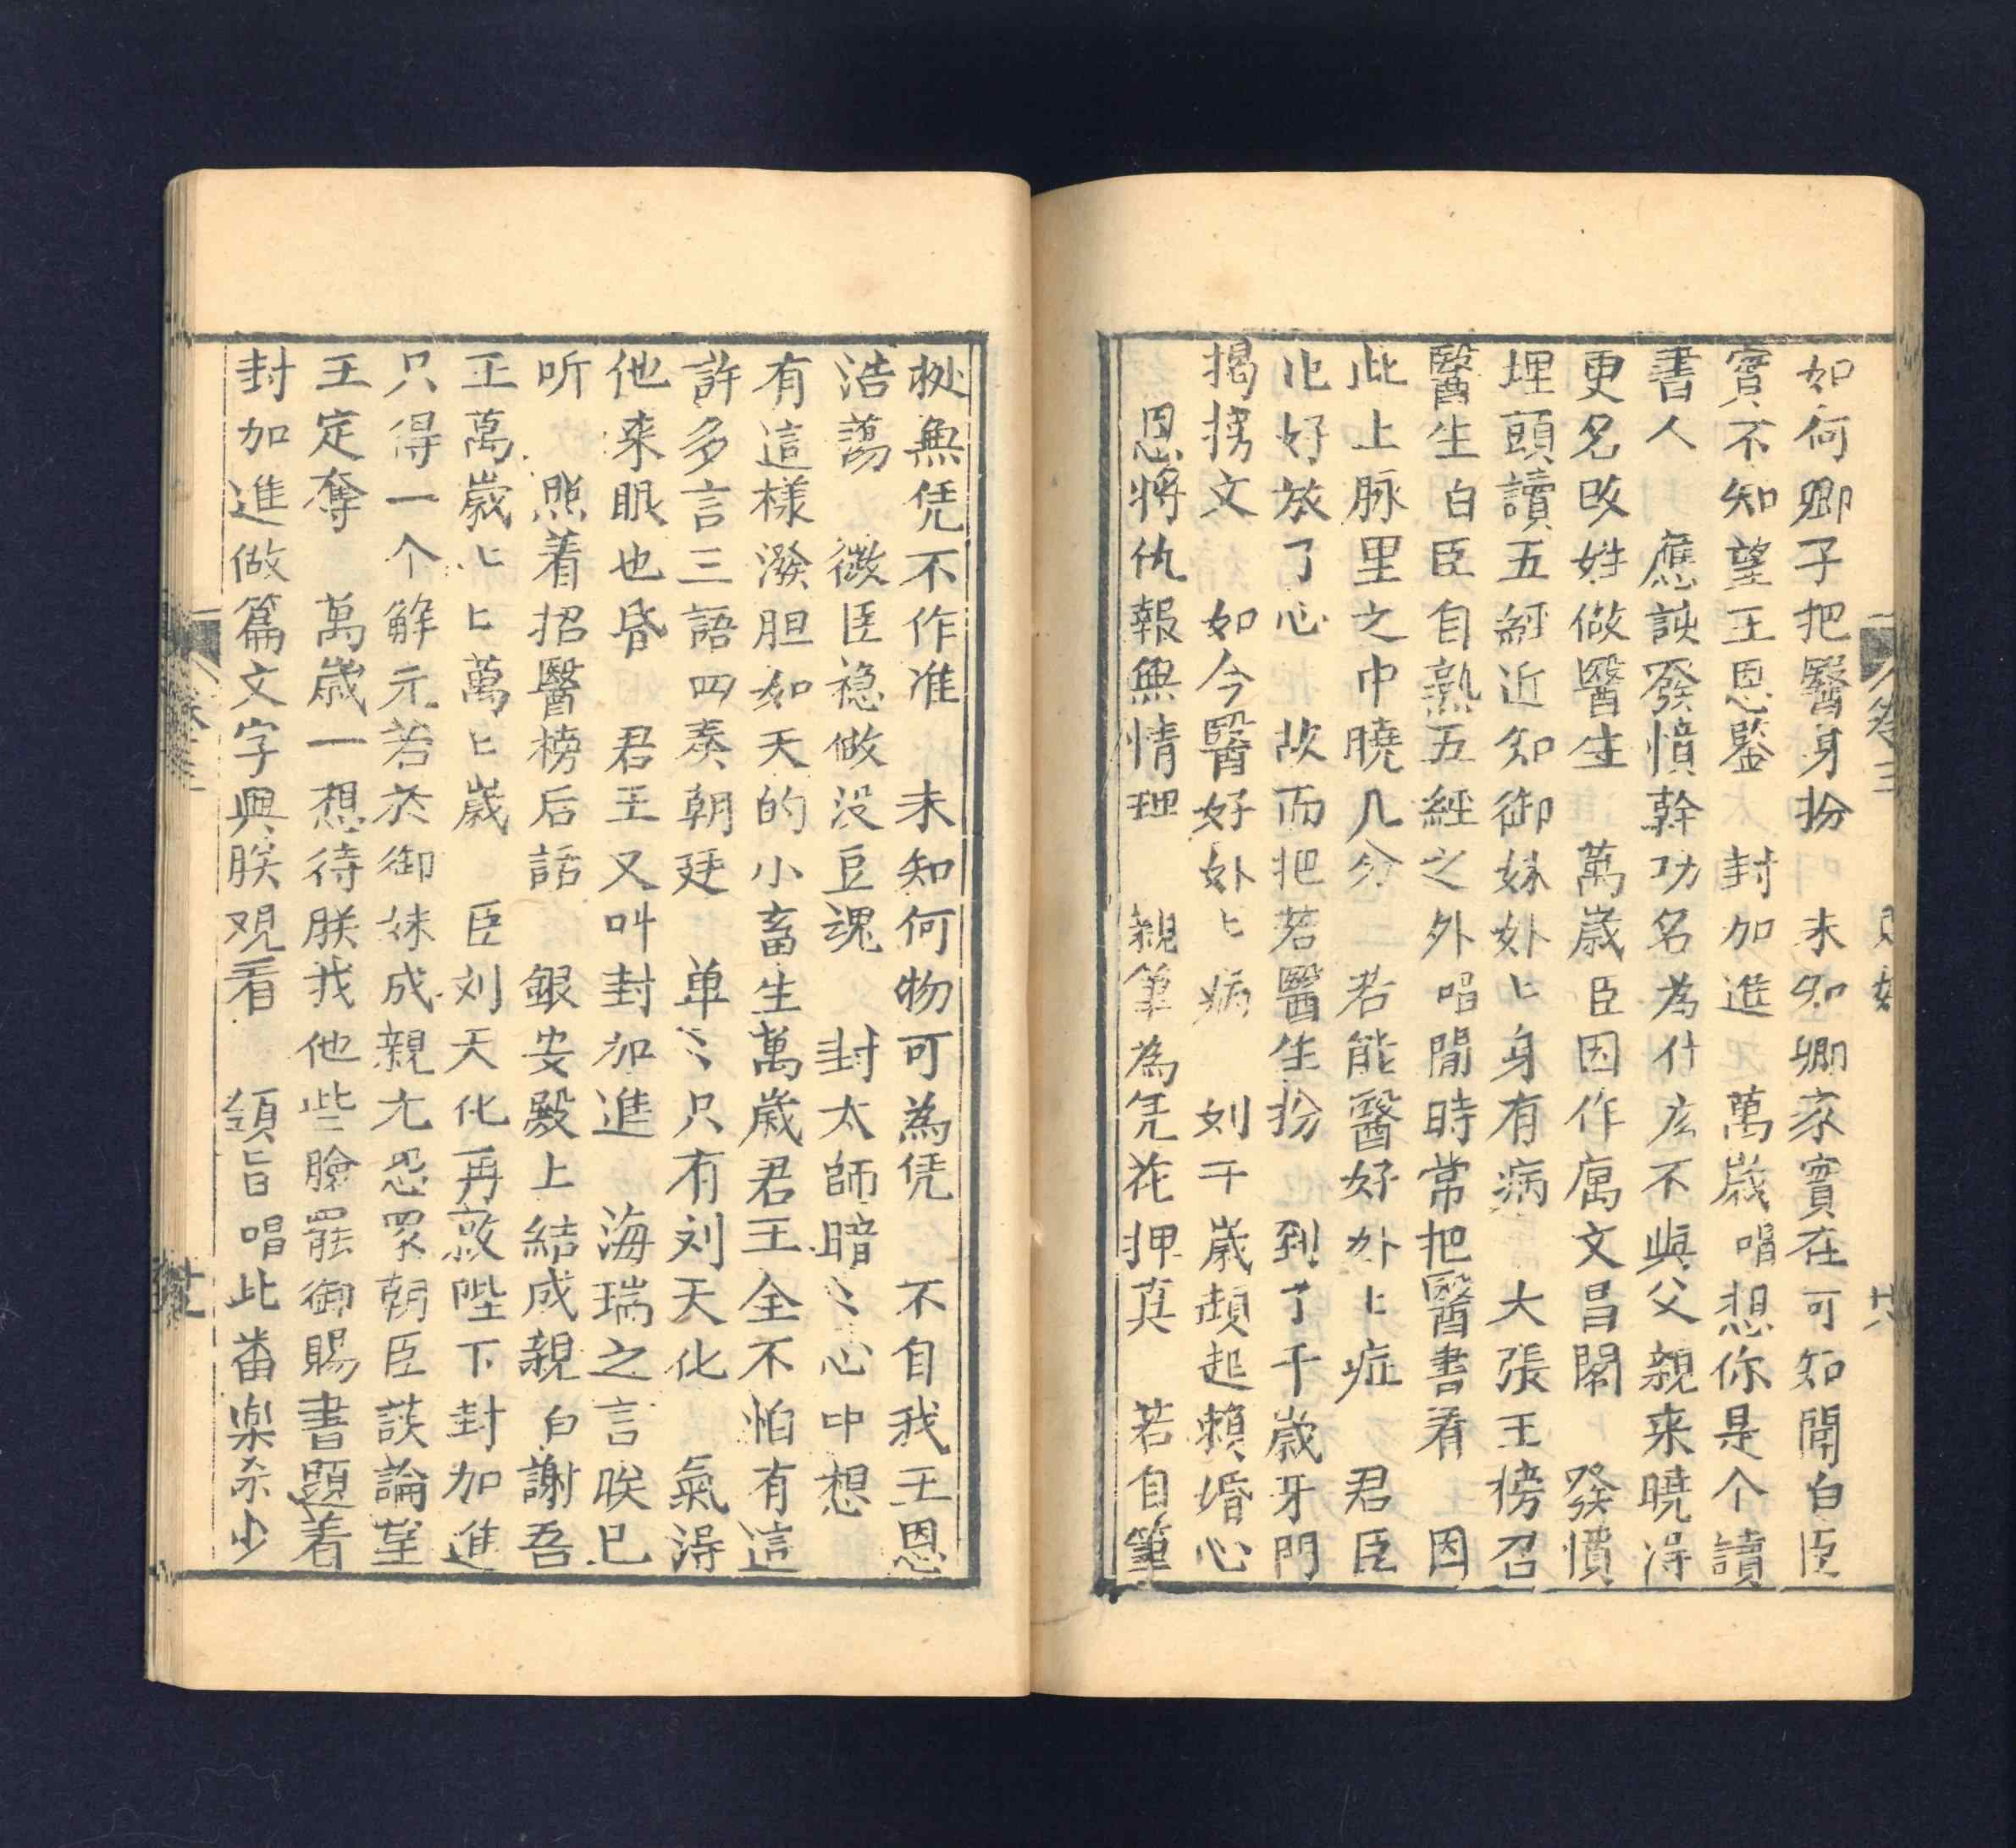 如何卿子把醫身扮　未知卿家實在可知聞白臣
實不知望王恩鑒　封加進　萬歲唱想你是个讀
書人　應該發憤幹功名為什広不與父親来曉淂
更名改姓做醫生　萬歲臣因作厲文昌閣　發憤
埋頭讀五経近知御妹姊〻身有病　大張王榜召
醫生白臣自熟五經之外唱閒時常把醫書看　因
此上脉里之中曉几分　若能醫好姊〻症　君臣
化好放了心　故而把若醫生扮　到了千歲牙門
揭榜文　如今醫好姊〻病　刘千歲頼起賴婚心
恩將仇報無情理　親筆為凭花押真　若自筆
㧡無凭不作准　未知何物可為凭　不自我王恩
浩蕩　微臣穏做没豆魂　封太師暗〻心中想
有這樣潑胆如天的小畜生萬歲君王全不怕有這
許多言三語四奏朝廷　单〻只有刘天化　氣淂
他来眼也昏　君王又叫封加進　海瑞之言朕已
听　照着招醫榜后話　銀安殿上結成親白謝吾
王萬歲〻〻萬〻歲　臣刘天化再啟陛下封加進
只得一个解元若於御妹成親尤恐眾朝臣談論望
王定奪　萬歲一想待朕我他些臉罷御賜書題着
封加進做篇文字與朕观看　領旨唱此番樂煞少
卷三